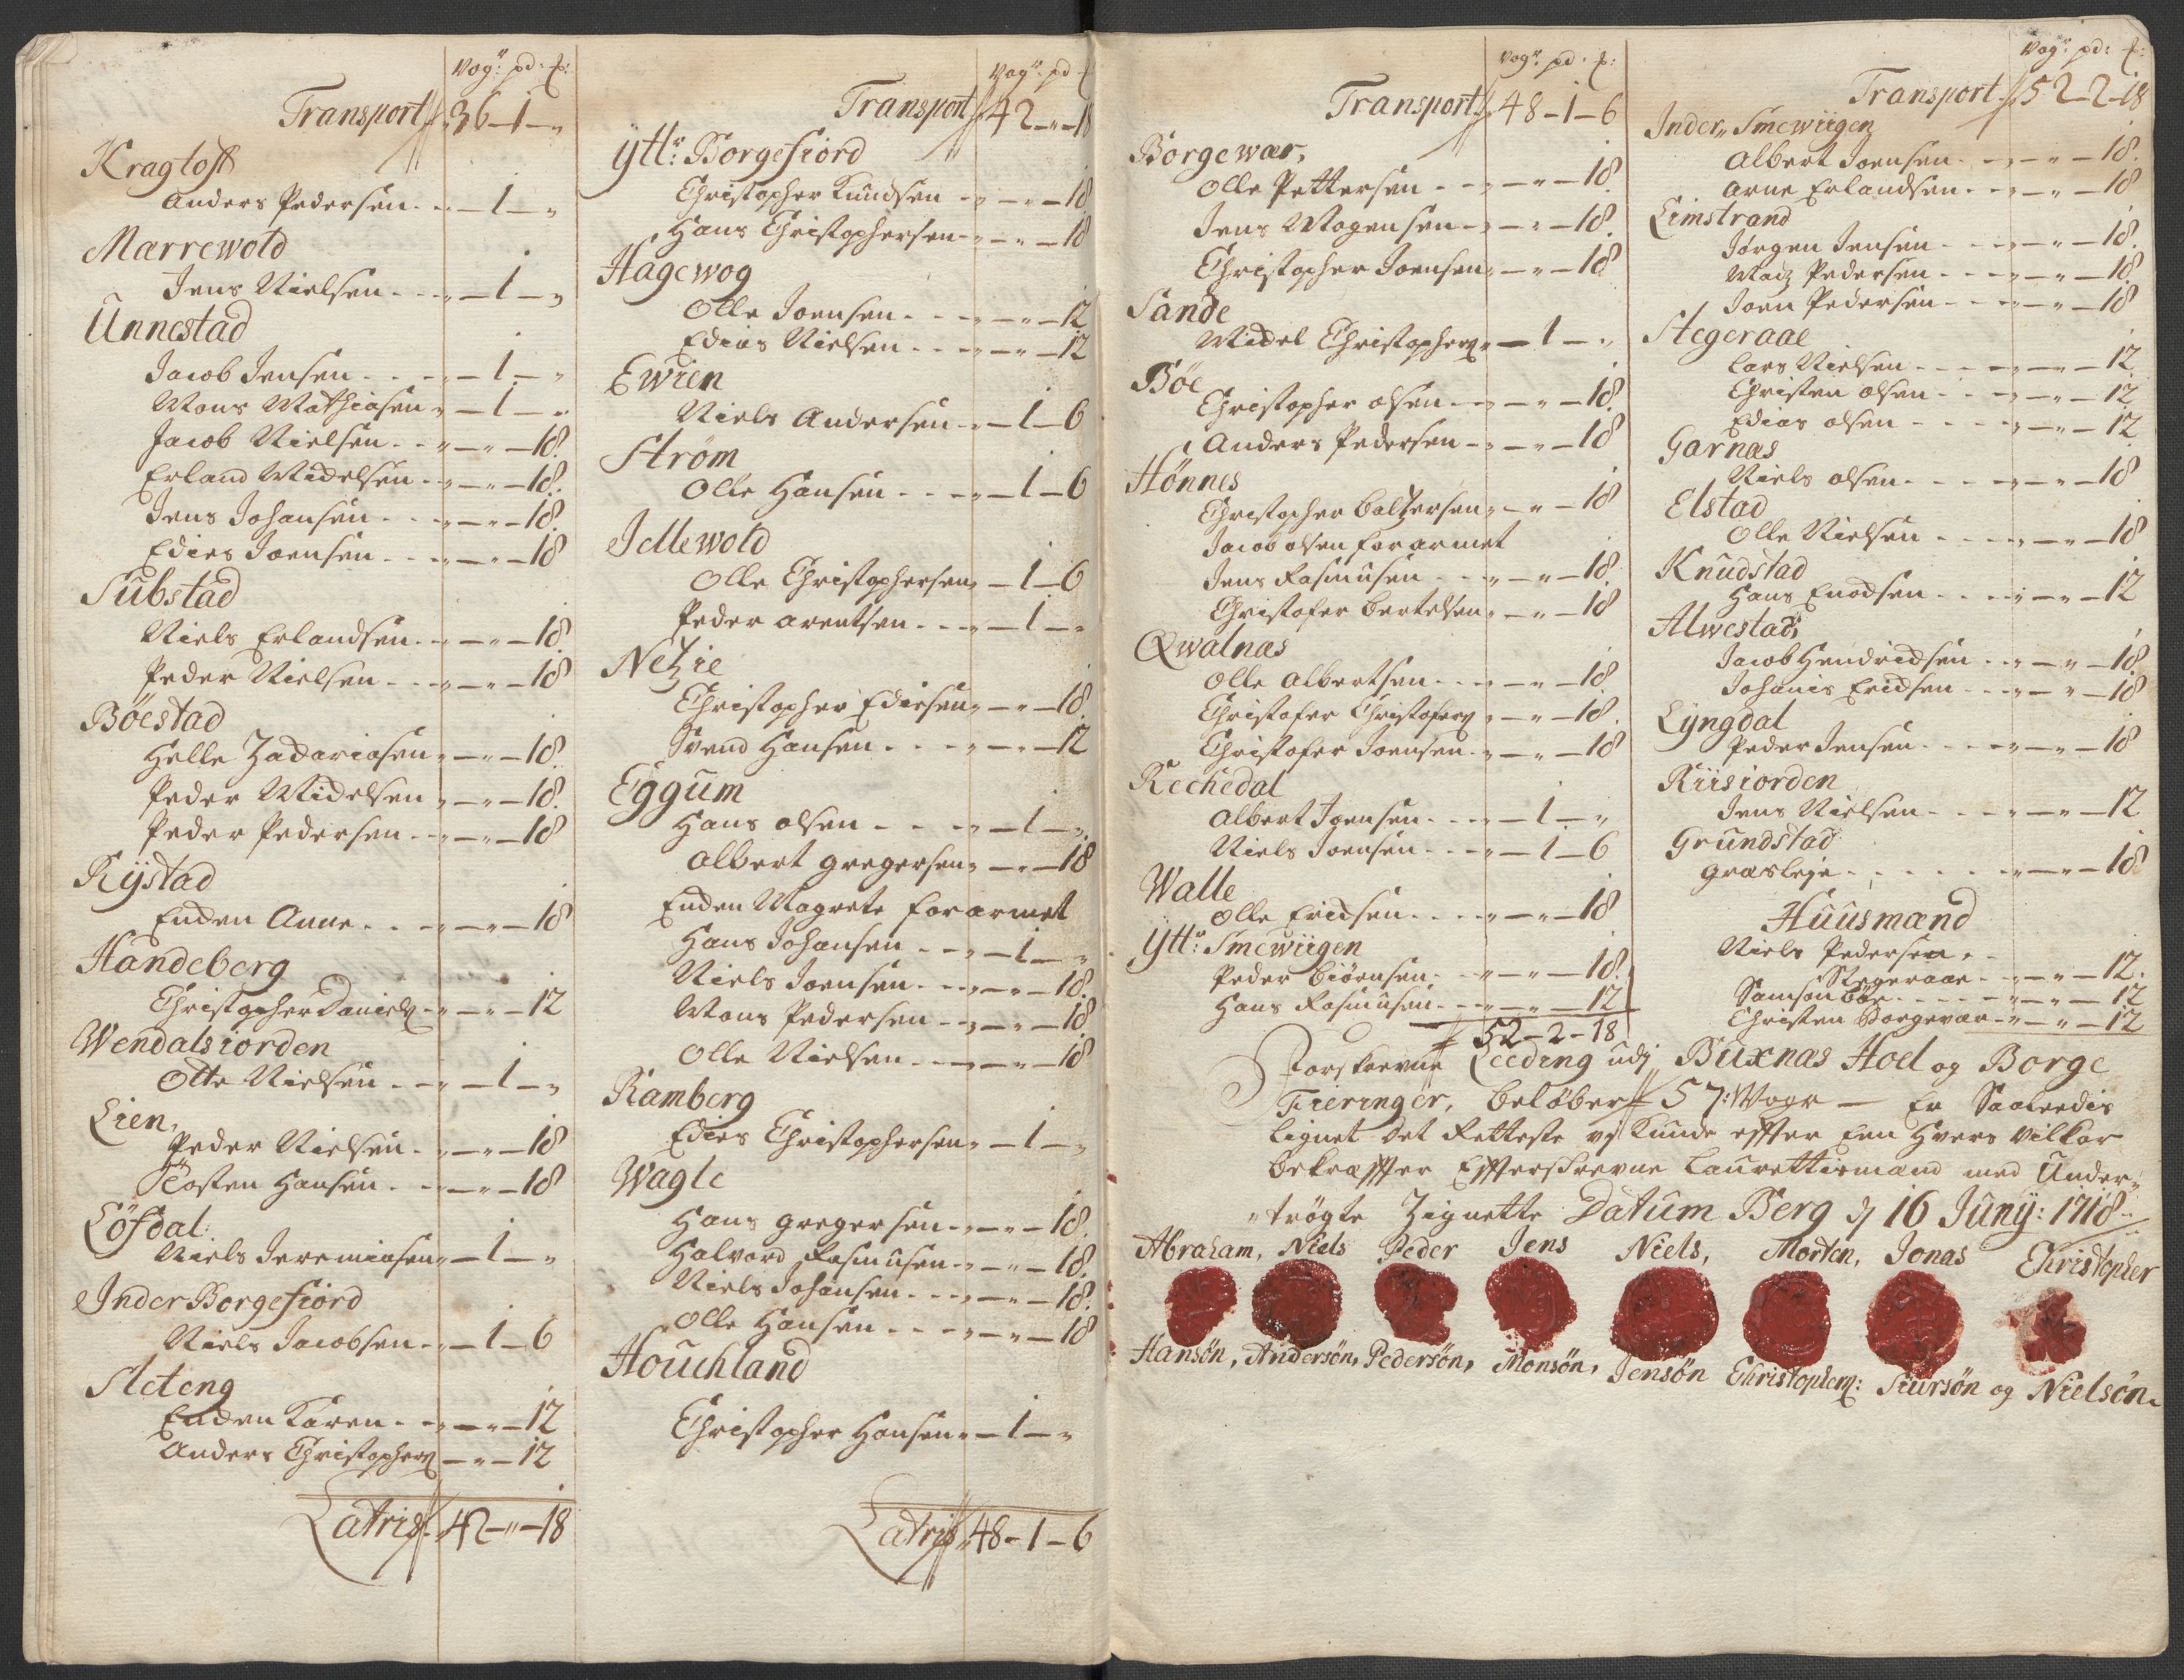 Vog: pd: ꝑ:
Transport 36 – 1 – „
Kragtoft
Anders Pedersen – 1 – „
Marrewold
Jens Nielsen – 1 – „
Unnestad
Jacob Jensen – 1 – „
Mons Mathiasen – 1 – „
Jacob Nielsen – „ – 18
Erland Michelsen – „ – 18
Jens Johansen – „ – 18
Edies Joensen – „ – 18
Substad
Niels Erlandsen – „ – 18
Peder Nielsen – „ – 18
Böestad
Helle Zachariasen – „ – 18
Peder Michelsen – „ – 18
Peder Pedersen – „ – 18
Rystad
Enchen Anne – „ – 18
Handeberg
Christopher Daniels – „ – 12
Wendalsiorden
Otte Nielsen – 1 – „
Lien,
Peder Nielsen – „ – 18
Tosten Hansen – „ – 18
Löfdal
Niels Jeremiasen – 1 – „
Inder Borgefiord
Niels Jacobsen – 1 – 6
Sleteng
Enchen Karen – „ – 12
Anders Christophers – „ – 12
Latris 42 – „ – 18
Vog: pd
Transport 42 – „ – 18
Ytt: Borgefiord
Christopher Knudsen – „ – 18
Hans Christophersen – „ – 18
Hagewog
Olle Joensen – „ – 12
Edias Nielsen – „ – 12
Ewien
Niels Andersen – 1 – 6
Strøm
Olle Hansen – 1 – 6
Jellewold
Olle Christophersen – 1 – 6
Peder Arentsen – 1 – „
Netzie
Christopher Ediesen – „ – 18
Svend Hansen – „ – 12
Eggum
Hans Olsen – 1 – „
Albert Gregersen – „ – 18
Enchen Magrete forarmet
Hans Johansen – 1 – „
Niels Joensen – „ – 18
Mons Pedersen – „ – 18
Olle Nielsen – „ – 18
Ramberg
Edies Christophersen – 1 – „
Wagle
Hans Gregersen – „ – 18
Halvord Rasmusen – „ – 18
Niels Johansen – „ – 18
Olle Hansen – „ – 18
Houchland
Christopher Hansen – 1 – „
Latris 48 – 1 – 6
Vog: pd: ꝑ:
Transport 48 – 1 – 6
Borgewær,
Olle Pettersen – „ – 18
Jens Mogensen – „ – 18
Christopher Joensen – „ – 18
Sande
Michel Christophers – 1 – „
Böe
Christopher Olsen – „ – 18
Anders Pedersen – „ – 18
Hönnes
Christopher Baltzersen – „ – 18
Jacob Olsen forarmet
Jens Rasmusen – „ – 18
Christofer Bertelsen – „ – 18
Qwalnas
Olle Albertsen – „ – 18
Christofer Christofers – „ – 18
Christofer Joensen – „ – 18
Rechedal
Albert Joensen – 1 – „
Niels Joensen – 1 – 6
Walle
Olle Ericksen – „ – 18
Ytt: Smewiigen
Peder Biörnsen – „ – 18
Hans Rasmusen – „ – 12
52 – 2 – 18
Vog: pd: ꝑ:
Transport 52 – 2 – 18
Inder„ Smewiigen
Albert Joensen – „ – 18
Arne Erlandsen – „ – 18
Limstrand
Jørgen Jensen – „ – 18
Madz Pedersen – „ – 18
Joen Pedersen – „ – 18
Stegeraae
Lars Nielsen – „ – 12
Christen Olsen – „ – 12
Edias Olsen – „ – 12
Garnas
Niels Olsen – „ – 18
Elstad
Olle Nielsen – „ – 18
Knudstad
Hans Enochsen – „ – 12
Alwestad
Jacob Hendrichsen – „ – 18
Johanis Ericksen – „ – 18
Lyngdal
Peder Jensen – „ – 18
Riisiorden
Jens Nielsen – „ – 12
Grundstad
Græsleje – „ – 18
Huusmænd
Niels Pedersen,
Stegeraae – „ – 12
Samson Böe – „ – 12
Christen Borgevær – „ – 12
Forskrevne Leeding udj Buxnas Hoel og Borge
Fieringer, beløber 57: Voge – Er Saaleedis
lignet det Retteste vj Kunde efter Een Hvers Vilkor
bekræfter Efterskrevne Laurettismænd med Under„
„trögte Zignette Datum Berg d 16 Juny: 1718
Abraham, Niels Peder Jens Niels, Morten, Jonas Christopher
Hansøn, Andersøn, Pedersøn, Monsøn, Jensøn Christophers: Siursøn og Nielsøn.